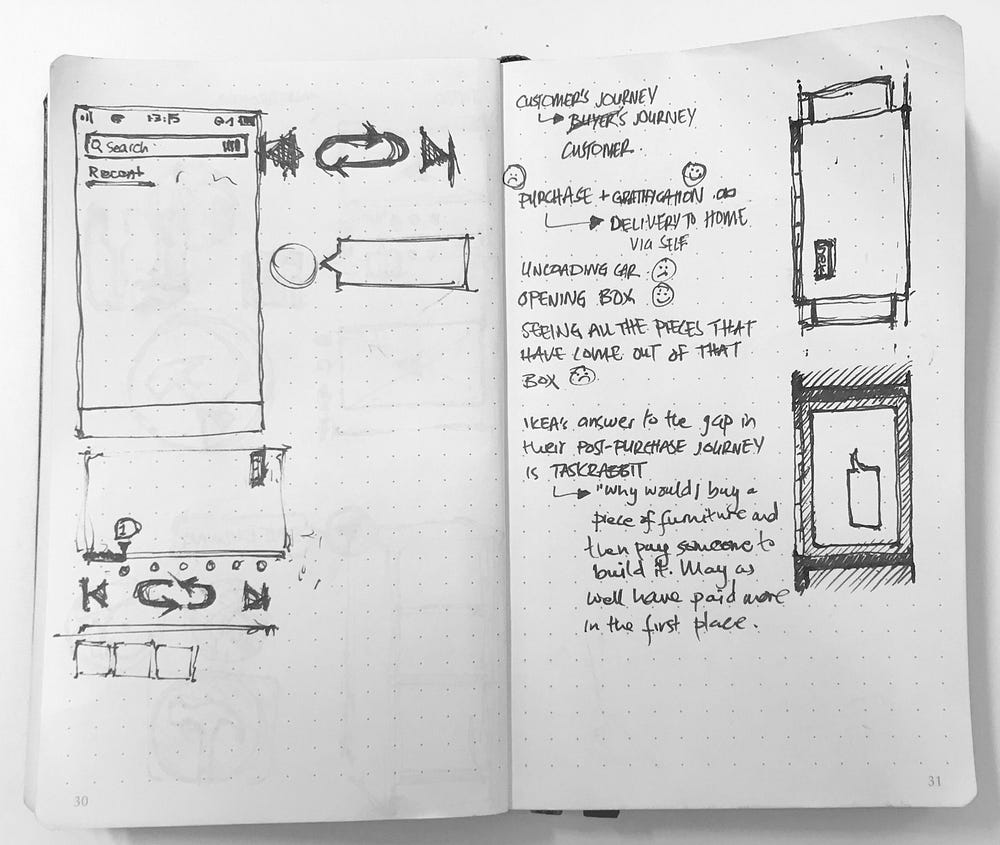 13:15
Search
Recent
1
30
CUSTOMER'S JOURNEY
BUYER'S JOURNEY
CUSTOMER.
PURCHASE + GRATIFICATION
DELIVERY TO HOME
VIA SELF
UNLOADING CAR
OPENING BOX
SEEING ALL THE PIECES THAT
HAVE COME OUT OF THAT
BOX
IKEA's answer to the gap in
their POST-PURCHASE JOURNEY
is TASKRABBIT
"Why would I buy a
piece of furniture and
then pay someone to
build it. May as
well have paid more
in the first place.
31